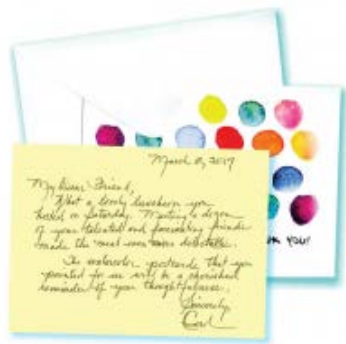 March 8, 2017
My Dear Friend,
What a lovely luncheon you
hosted on Saturday. Meeting a dozen
of your talented and fascinating friends
made the meal even more delectable.
The watercolor postcards that you
painted for us will be a cherished
reminder of your thoughtfulness.
Sincerely,
Carol
YOU!